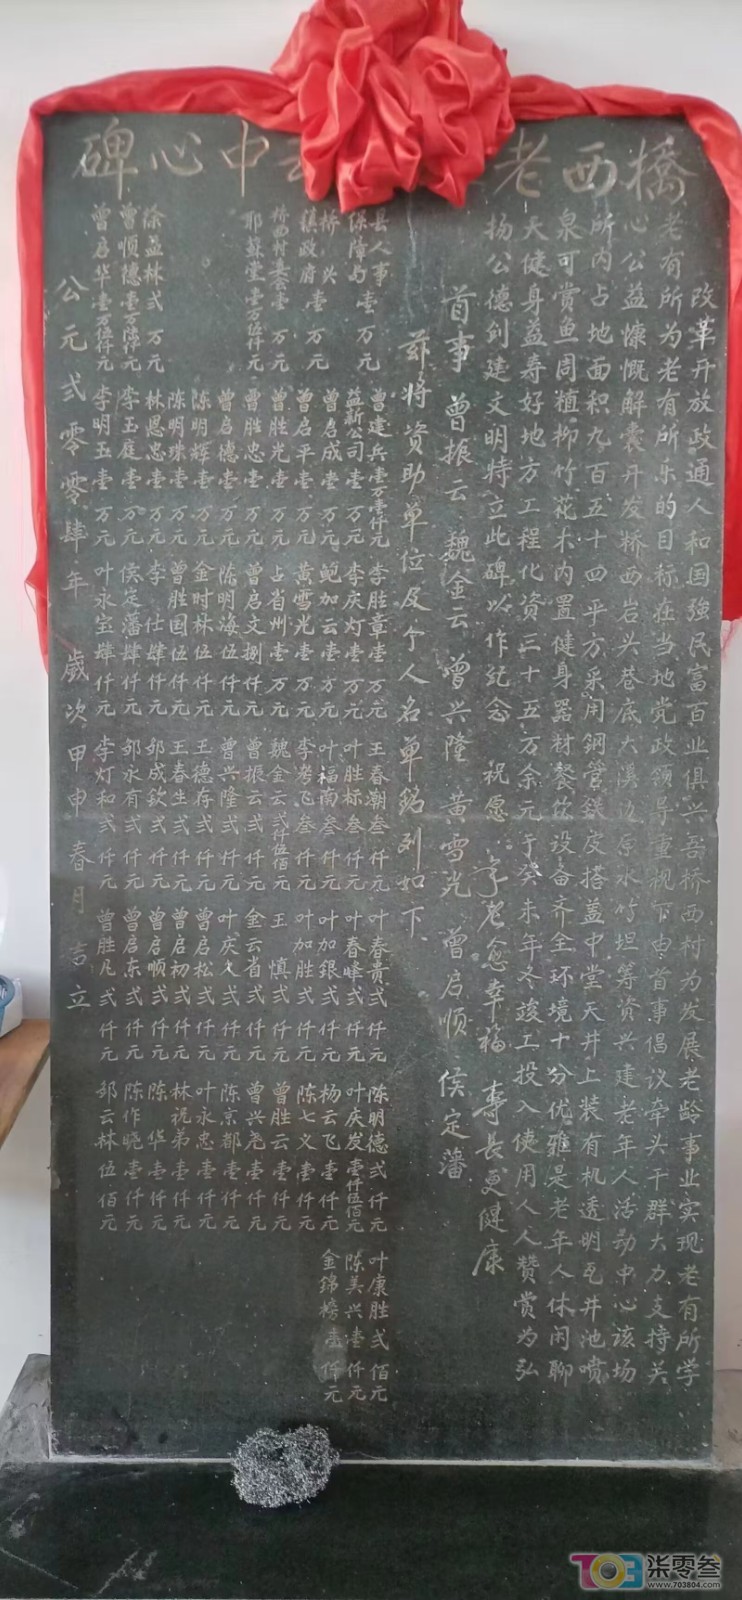 橋西老 中心碑
改革开放政通人和国強民富百业俱兴吾桥西村为发展老龄事业实现老有所学
老有所为老有所乐的目标在当地党政领导重视下由首事倡议牵头干群大力支持关
心公益慷慨解囊开发桥西岩头巷底大溪边原水竹坦筹资兴建老年人活动中心该场
所内占地面积九百五十四平方采用鋼管鉄皮搭盖中堂天井上装有机透明瓦井池喷
泉可赏鱼周植柳竹花木内置健身器材餐饮设备齐全环境十分优雅是老年人休闲聊
天健身益寿好地方工程化资三十五万余元于癸未年冬竣工投入使用人人赞赏为弘
扬公德创建文明特立此碑以作纪念 祝愿：孝老愈幸福 壽长更健康
首事 曾振云 魏金云 曾兴隆 黄雪光 曾启顺 侯定潘
兹将资助单位及个人名单銘列如下
县人事 曾建兵壹万壹仟元 李胜章壹万元 王春潮叁仟元 叶春贵弍仟元 陈明德弍仟元 叶康胜弍佰元
保障局壹万元 益新公司壹万元 李庆灯壹万元 叶胜标叁仟元 叶春峰弍仟元 叶庆发壹仟伍佰元 陈美兴壹仟元
桥头 曾启成壹万元 鲍加云壹万元 叶福南叁仟元 叶加银弍仟元 杨云飞壹仟元 金锦榜壹仟元
镇政府壹万元 曾启平壹万元 黄雪光壹万元 李孝飞叁仟元 叶加胜弍仟元 陈七义壹仟元
桥西村委会壹万元 曾胜光壹万元 占省州壹万元 魏金云弍仟伍佰元 王慎弍仟元 曾胜云壹仟元
耶稣堂壹万伍仟元 曾胜忠壹万元 曾启文捌仟元 曾振云弍仟元 金云省弍仟元 曾兴尧壹仟元
曾启德壹万元 陈明海伍仟元 曾兴隆弍仟元 叶庆久弍仟元 陈京都壹仟元
陈明辉壹万元 金时林伍仟元 王德存弍仟元 曾启松弍仟元 叶永忠壹仟元
陈明珠壹万元 曾胜国伍仟元 王春生弍仟元 曾启初弍仟元 林祝弟壹仟元
徐益林弍万元 林恩忠壹万元 李仕肆仟元 邹成钦弍仟元 曾启顺弍仟元 陈华壹仟元
曾顺德壹万陆仟元 李玉庭壹万元 侯定潘肆仟元 邹永有弍仟元 曾启东弍仟元 陈作晓壹仟元
曾启华壹万伍仟元 李明玉壹万元 叶永宝肆仟元 李灯和弍仟元 曾胜凡弍仟元 邹云林伍佰元
公元弍零零肆年 歲次甲申春月吉立
703 柒零叁
www.703804.com